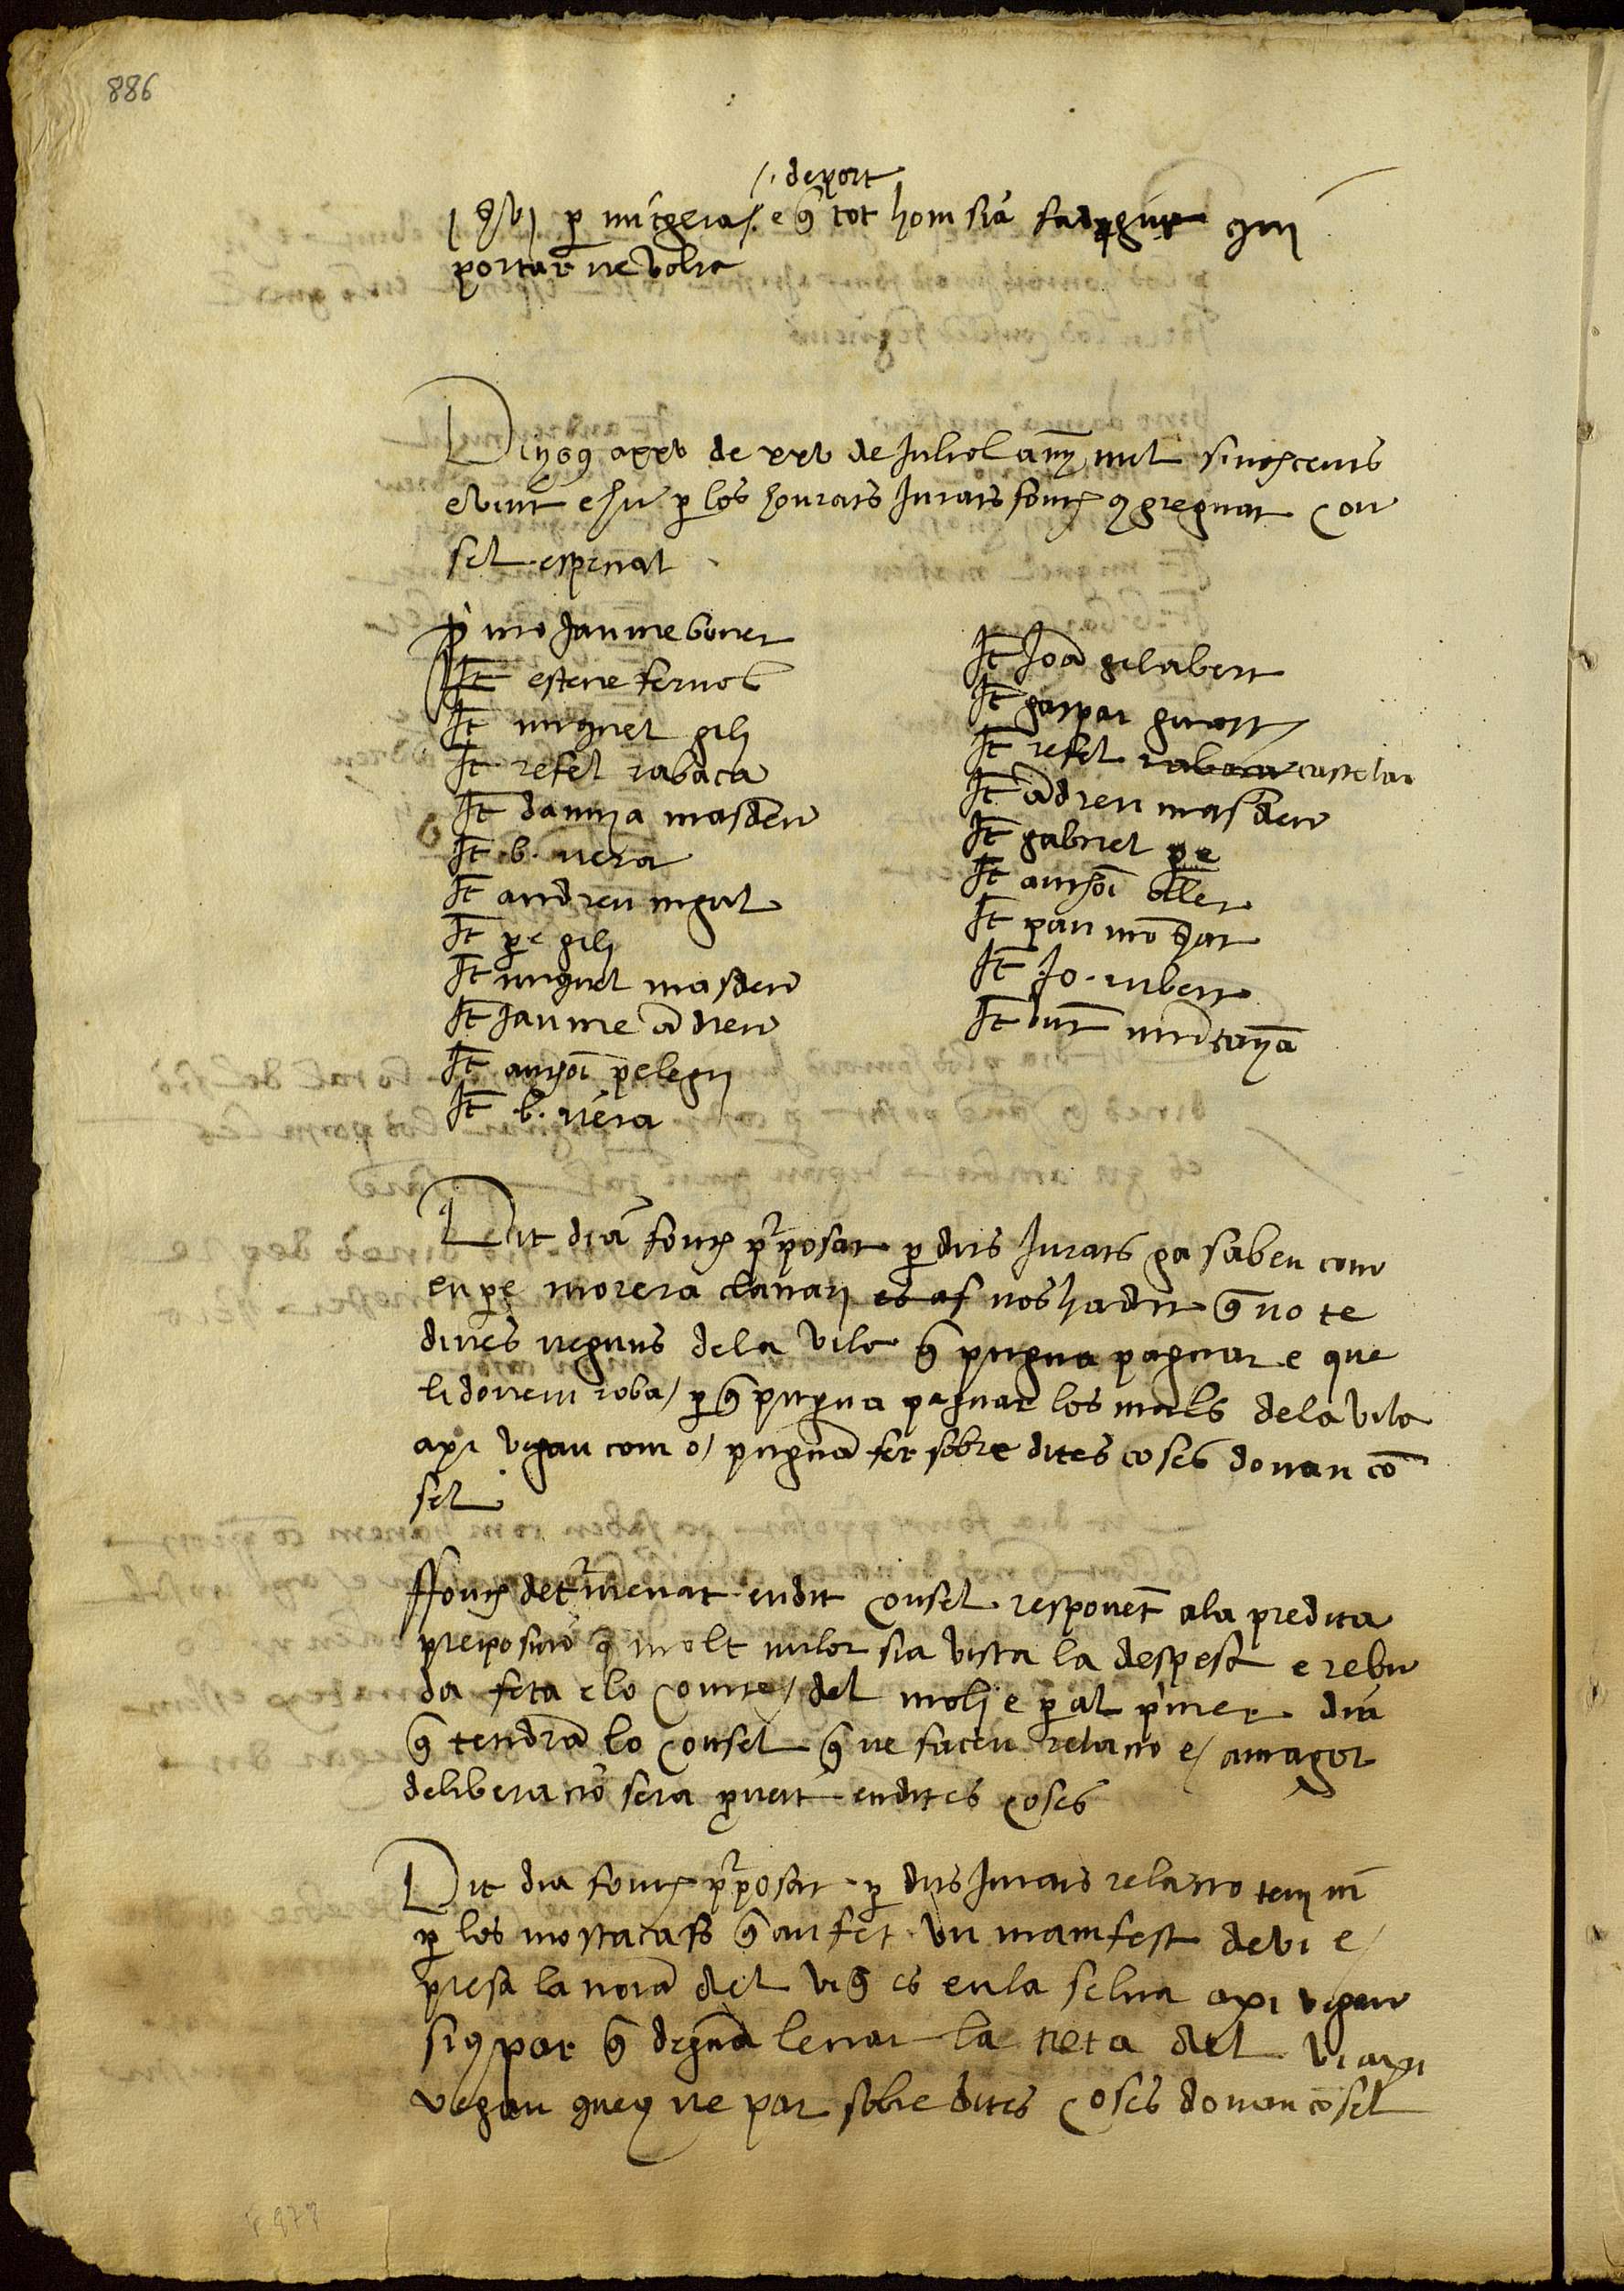 886
/. deport
j § vj p migera /. e q̃ tot hom sia qui
portar ne volra
Dijo9 a xxv de Juliol añy mil sinchcents
e vint e hu p los honrats Jurats fonch 9greguat Con
sel espesial
p̊mo Jaume boner
It esteve fernol
It miquel gili
It refel rabaca
It damia masdeu
It b. vera
It andreu nigul
It pe gili
It miguel masdeu
It Jaume ãdreu
It anthoi pelegri
It b. riera
It Joã gelabert
It gaspar
It refel rabaca castelar
It ãdreu masdeu
It gabriel pe
It anthoi oller
It pau
It Jo. rubert
It
Dit dia fonch pposat p dits Jurats ça saben com
en pe morera clavari es af nos ha dit q̃ no te
dines neguns de la vila q̃ pugua paguar e que
li donem roba / p q̃ pugua paguar los mals de la vila
axi vegau com o / puguã fer sobre dites coses donau cõ
sel
ffonch detrmenat en dit Consel responet a la predita
preiposicio q̃ molt milor sia vista la despesa e rebu
da feta e lo Comte / del moli e p al pmer dia
q̃ tendrã lo Consel q̃ ne facen relacio e / ab mayor
deliberacio sera pveit en dites coses
Dit dia fonch pposat p dits Jurats relacio tenim
p los mostacafs q̃ an fet un manifest de vi e /
presa la noia del vi q̃ es en la selva axi vegau
si 9 par q̃ deguã levar la treta del vi axi
vegau que 9 ne par sobre dites Coses donau cõsel
F 878